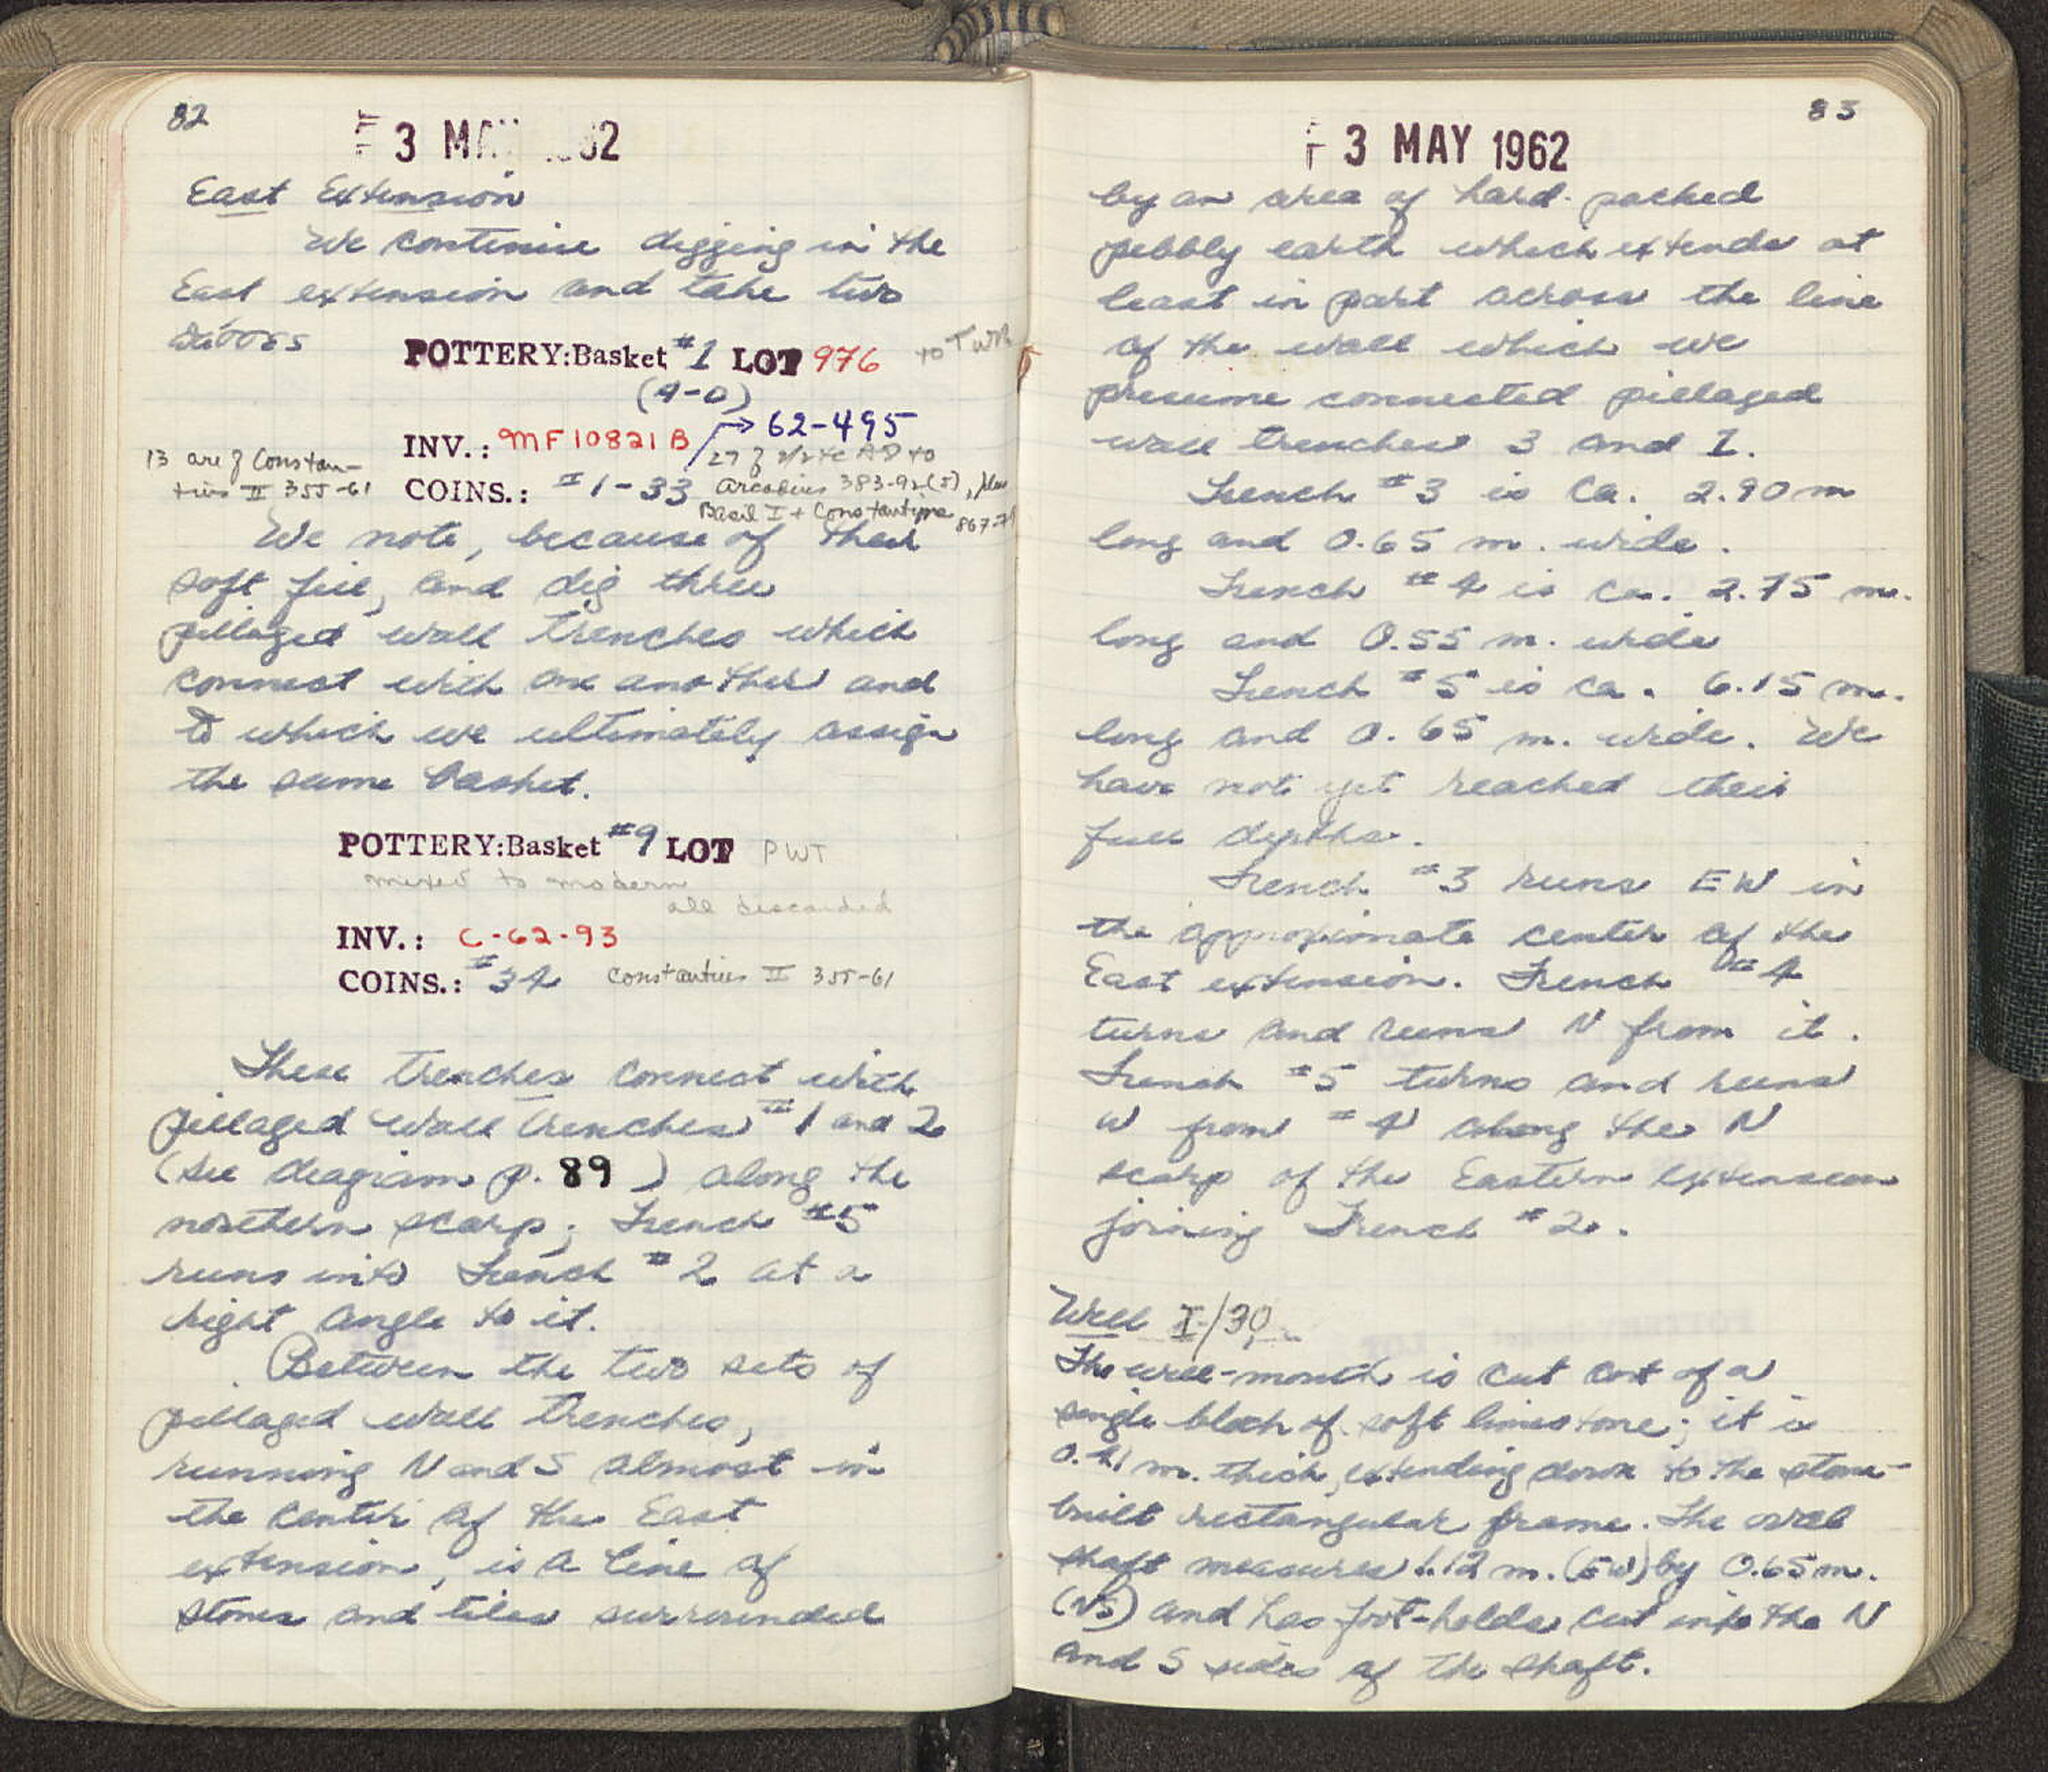 82
3 MAY 1962
East Extension
We continue digging in the
East extension and take two
POTTERY: Basket #1 LOT 976
(A-D)
INV.: MF 10821 B → 62-495
COINS.: #1-33
13 are of Constan-
tius II 355-61
Arcadius 383-92(5), plus
Basil I + Constantine
We note, because of their
soft fill, and dig three
pillaged wall trenches which
connect with one another and
to which we ultimately assign
the same basket.
POTTERY: Basket #9 LOT PWT
mixed to modern
all discarded
INV.: C-62-93
COINS.: #34 Constantius II 355-61
These trenches connect with
pillaged wall trenches #1 and 2
(see diagram p. 89) along the
northern scarp; Trench #5
runs into Trench #2 at a
right angle to it.
Between the two sets of
pillaged wall trenches,
running N and S almost in
the center of the East
extension, is a line of
stones and tiles surrounded
83
3 MAY 1962
by an area of hard-packed
pebbly earth which extends at
least in part across the line
of the wall which we
presume connected pillaged
wall trenches 3 and 1.
Trench #3 is ca. 2.90 m
long and 0.65 m. wide.
Trench #4 is ca. 2.75 m.
long and 0.55 m. wide
Trench #5 is ca. 6.15 m.
long and 0.65 m. wide. We
have not yet reached their
full depths.
Trench #3 runs EW in
the approximate center of the
East extension. Trench #4
turns and runs N from it.
Trench #5 turns and runs
W from #4 along the N
scarp of the Eastern extension
joining Trench #2.
Well I/30
The well-mouth is cut out of a
single block of soft limestone; it is
m. thick, extending down to the stone-
built rectangular frame. The oval
shaft measures 1.12 m. (EW) by 0.65 m.
(NS) and has foot-holds cut into the N
and S sides of the shaft.